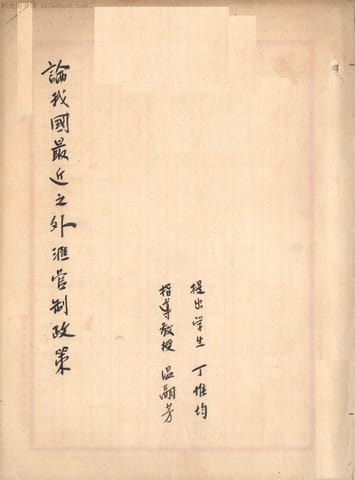 提出学生 丁惟均
指導教授 温嗣芳
論我國最近之外滙管制政策